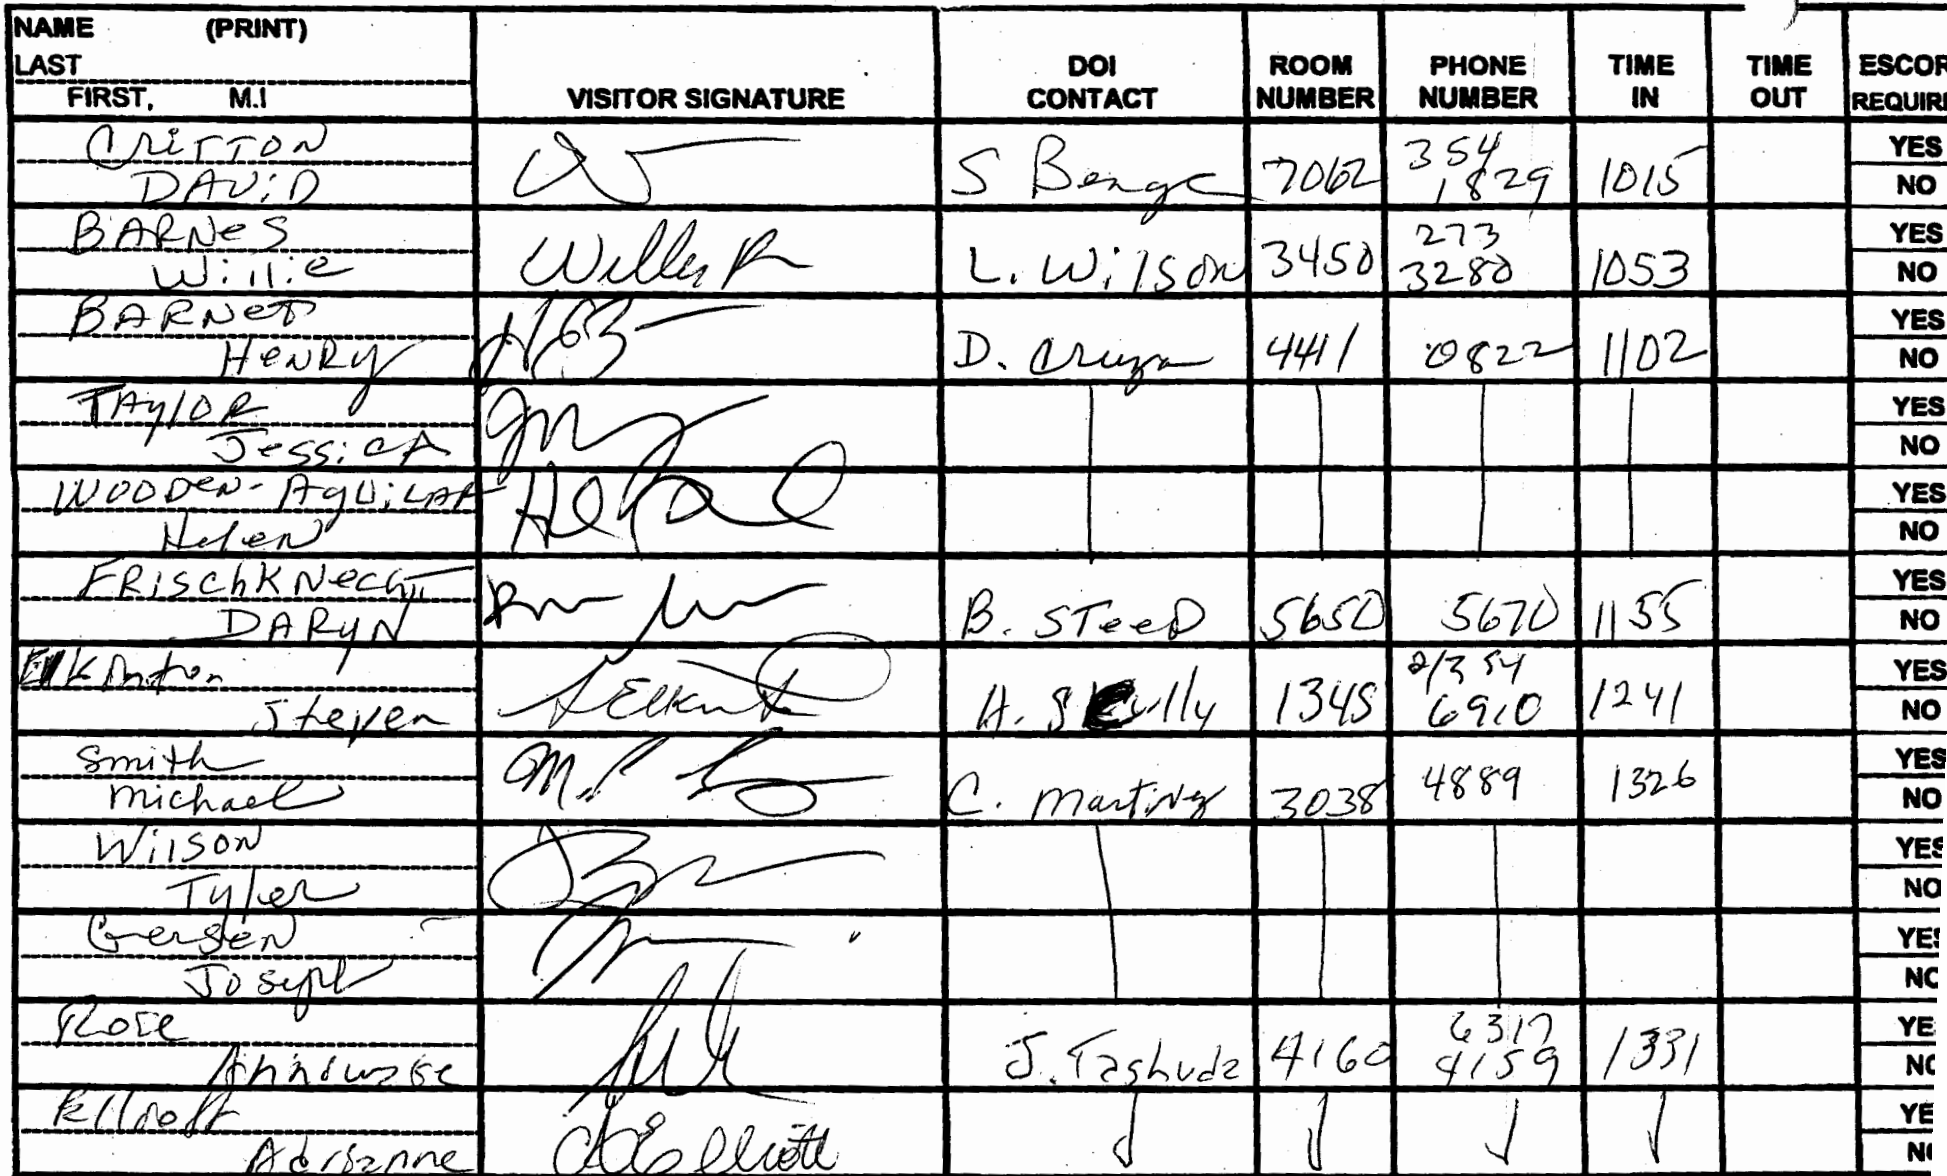 NAME (PRINT)
LAST
FIRST, M.I
VISITOR SIGNATURE
DOI CONTACT
ROOM NUMBER
PHONE NUMBER
TIME IN
TIME OUT
ESCOR
REQUIRI
CRITTON
DAVID
S Benge 7062 354 1829 1015
YES
NO
BARNES
Willie
L. Wilson 3450 273 3280 1053
YES
NO
BARNET
HENRY
D. 4411 0822 1102
YES
NO
TAYLOR
JessicA
YES
NO
WOODEN-AGUILAR
Helen
YES
NO
FRISCHKNECHT
DARYN
B. STeeD 5650 5670 1155
YES
NO
Elkinton
Steven
SElkinton
H. 1345 6910 1241
YES
NO
Smith
Michael
C. Martinez 3038 4889 1326
YES
NO
Wilson
Tyler
YES
NO
Gersen
Joseph
YES
NO
Rose
J. 4160 6317 4159 1331
YE
NO
Adrianne
AElliott
YE
NO